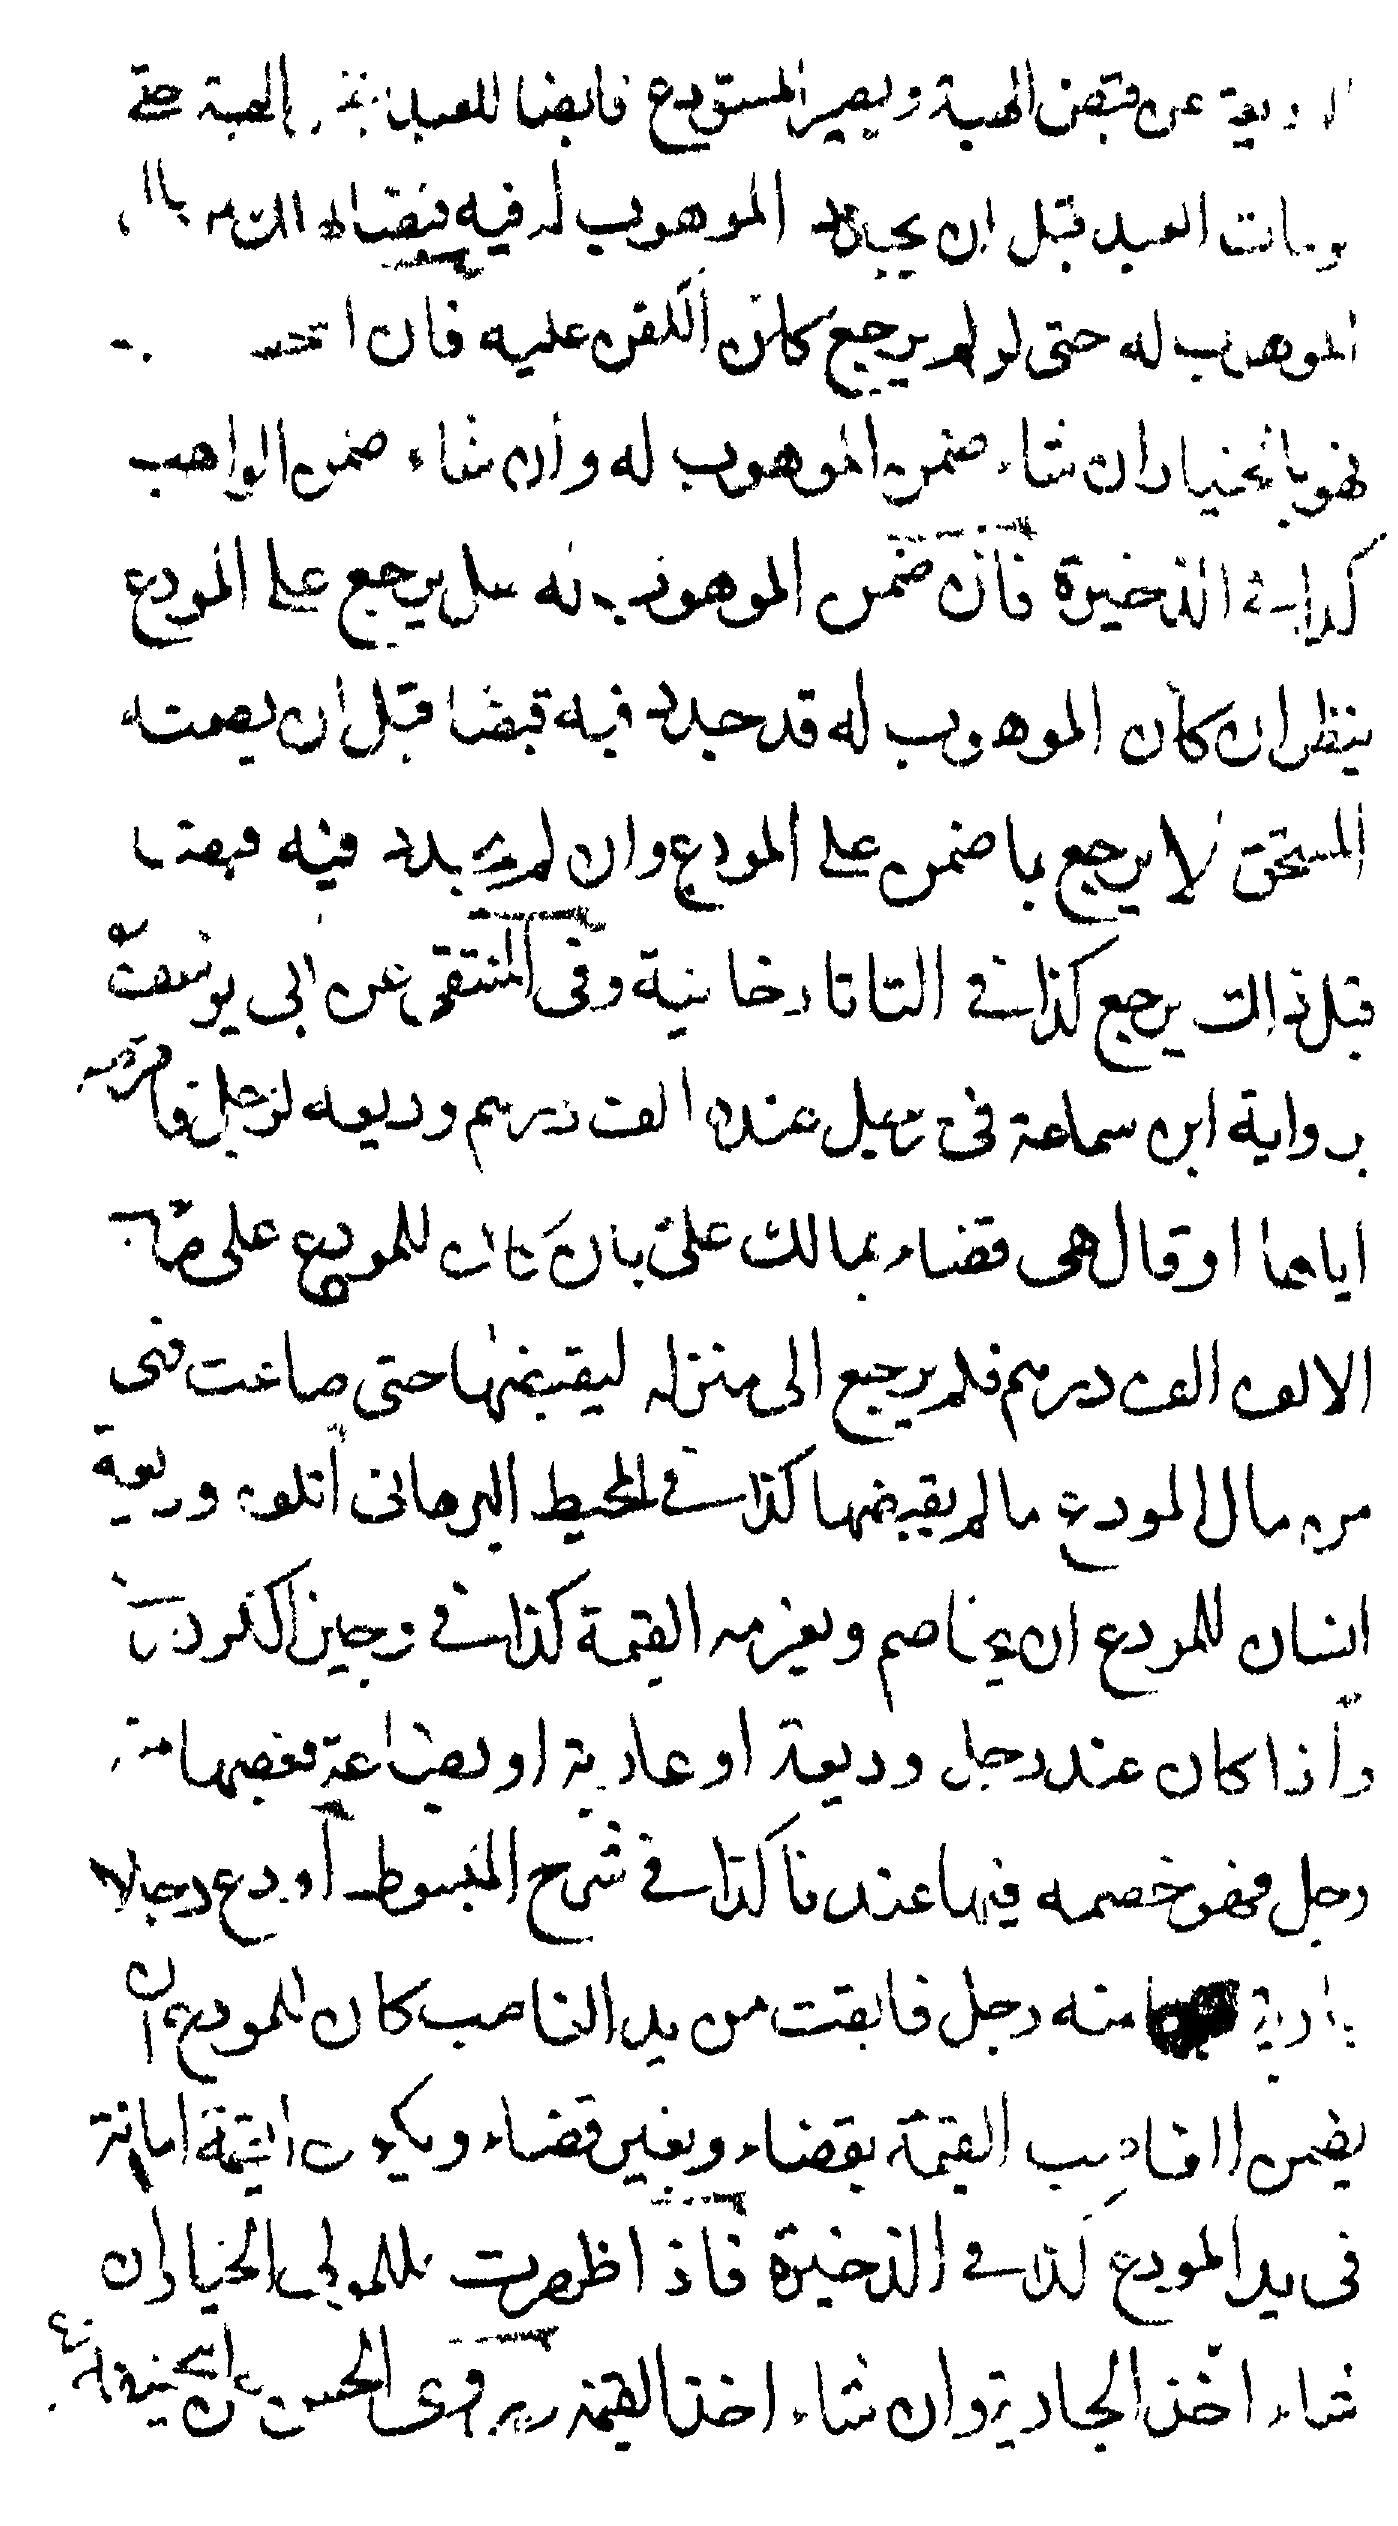 الوديعة عن قبض الهبة ويصير المستودع قابضا للعبد الهبة حتى
ومات العبد قبل ان يجدد الموهوب له فيه قبضا
الموهوب له حتى لو لم يرجع كان الكفن عليه فان استحق
فهو بالخيار ان شاء ضمن الموهوب له وان شاء ضمن الواهب
كذا في الذخيرة فان ضمن الموهوب له هل يرجع على المودع
ينظر ان كان الموهوب له قد جدد فيه قبضا قبل ان يضمنه
المستحق لا يرجع بما ضمن على المودع وان لم يجدد فيه قبضا
قبل ذلك يرجع كذا في التاتارخانية وفي المنتقى عن ابى يوسف
برواية ابن سماعة فى رجل عنده الف درهم وديعه لرجل فاقرضه
اياها او قال هى قضاء بمالك على بان كان للمودع على صاحب
الالف الف درهم فلم يرجع الى منزله ليقبضها حتى ضاعت فهى
من مال المودع ما لم يقبضها كذا في المحيط البرهانى اتلف وديعة
انسان للمودع ان يخاصم ويغرمه القيمة كذا في وجيز الكردري
واذا كان عند رجل وديعة او عارية او بضاعة فغصبها منه
رجل فهو خصمه فيها عندنا كذا في شرح المبسوط اودع رجلا
جارية منه رجل فابقت من يد الغاصب كان للمودع ان
يضمن الغاصب القيمة بقضاء وبغير قضاء ويكون القيمة امانة
فى يد المودع كذا في الذخيرة فاذا ظهرت للمولى الخيار ان
شاء اخذ الجارية وان شاء اخذ القيمة روى الحسن عن ابي حنيفة